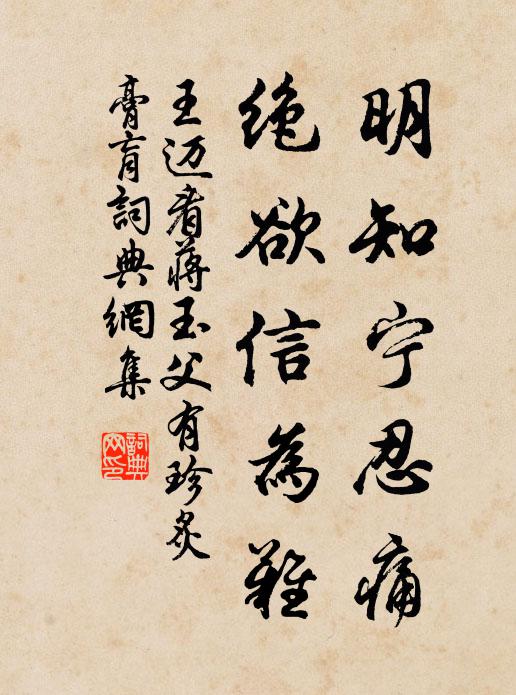 明知宁忍痛
绝欲信为难
王迈者蒋玉父有珍炙
膏肓词典網集
詞典网印